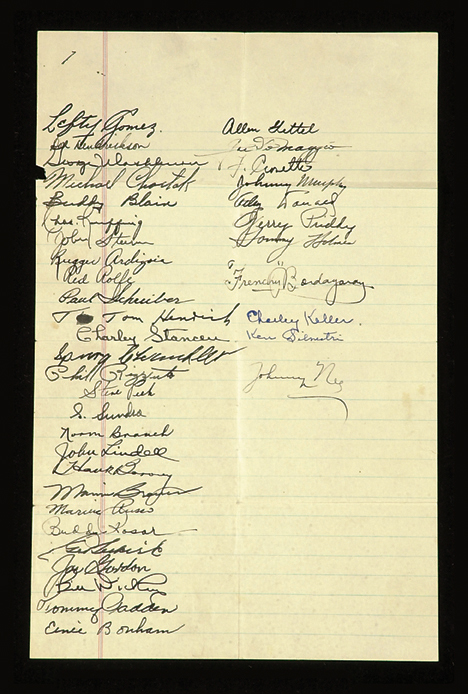 Lefty Gomez.
Ed Hendrickson
George Washburn
Michael Chartak
Buddy Blair
Chas. Ruffing
John Sturm
Rugger Ardizoia
Red Rolfe
Paul Schreiber
Tom Henrich
Charley Stanceu
Phil Rizzuto
Steve Peek
S. Sundra
Norm Branch
John Lindell
Hank Borowy
Marius Russo
Buddy Rosar
Joe Gordon
Bill Dickey
Tommy Padden
Ernie Bonham
Allen Gettel
Joe DiMaggio
F. Crosetti
Johnny Murphy
Gerry Priddy
Tommy Holmes
"Frenchy" Bordagaray
Charley Keller.
Ken Silvestri
Johnny